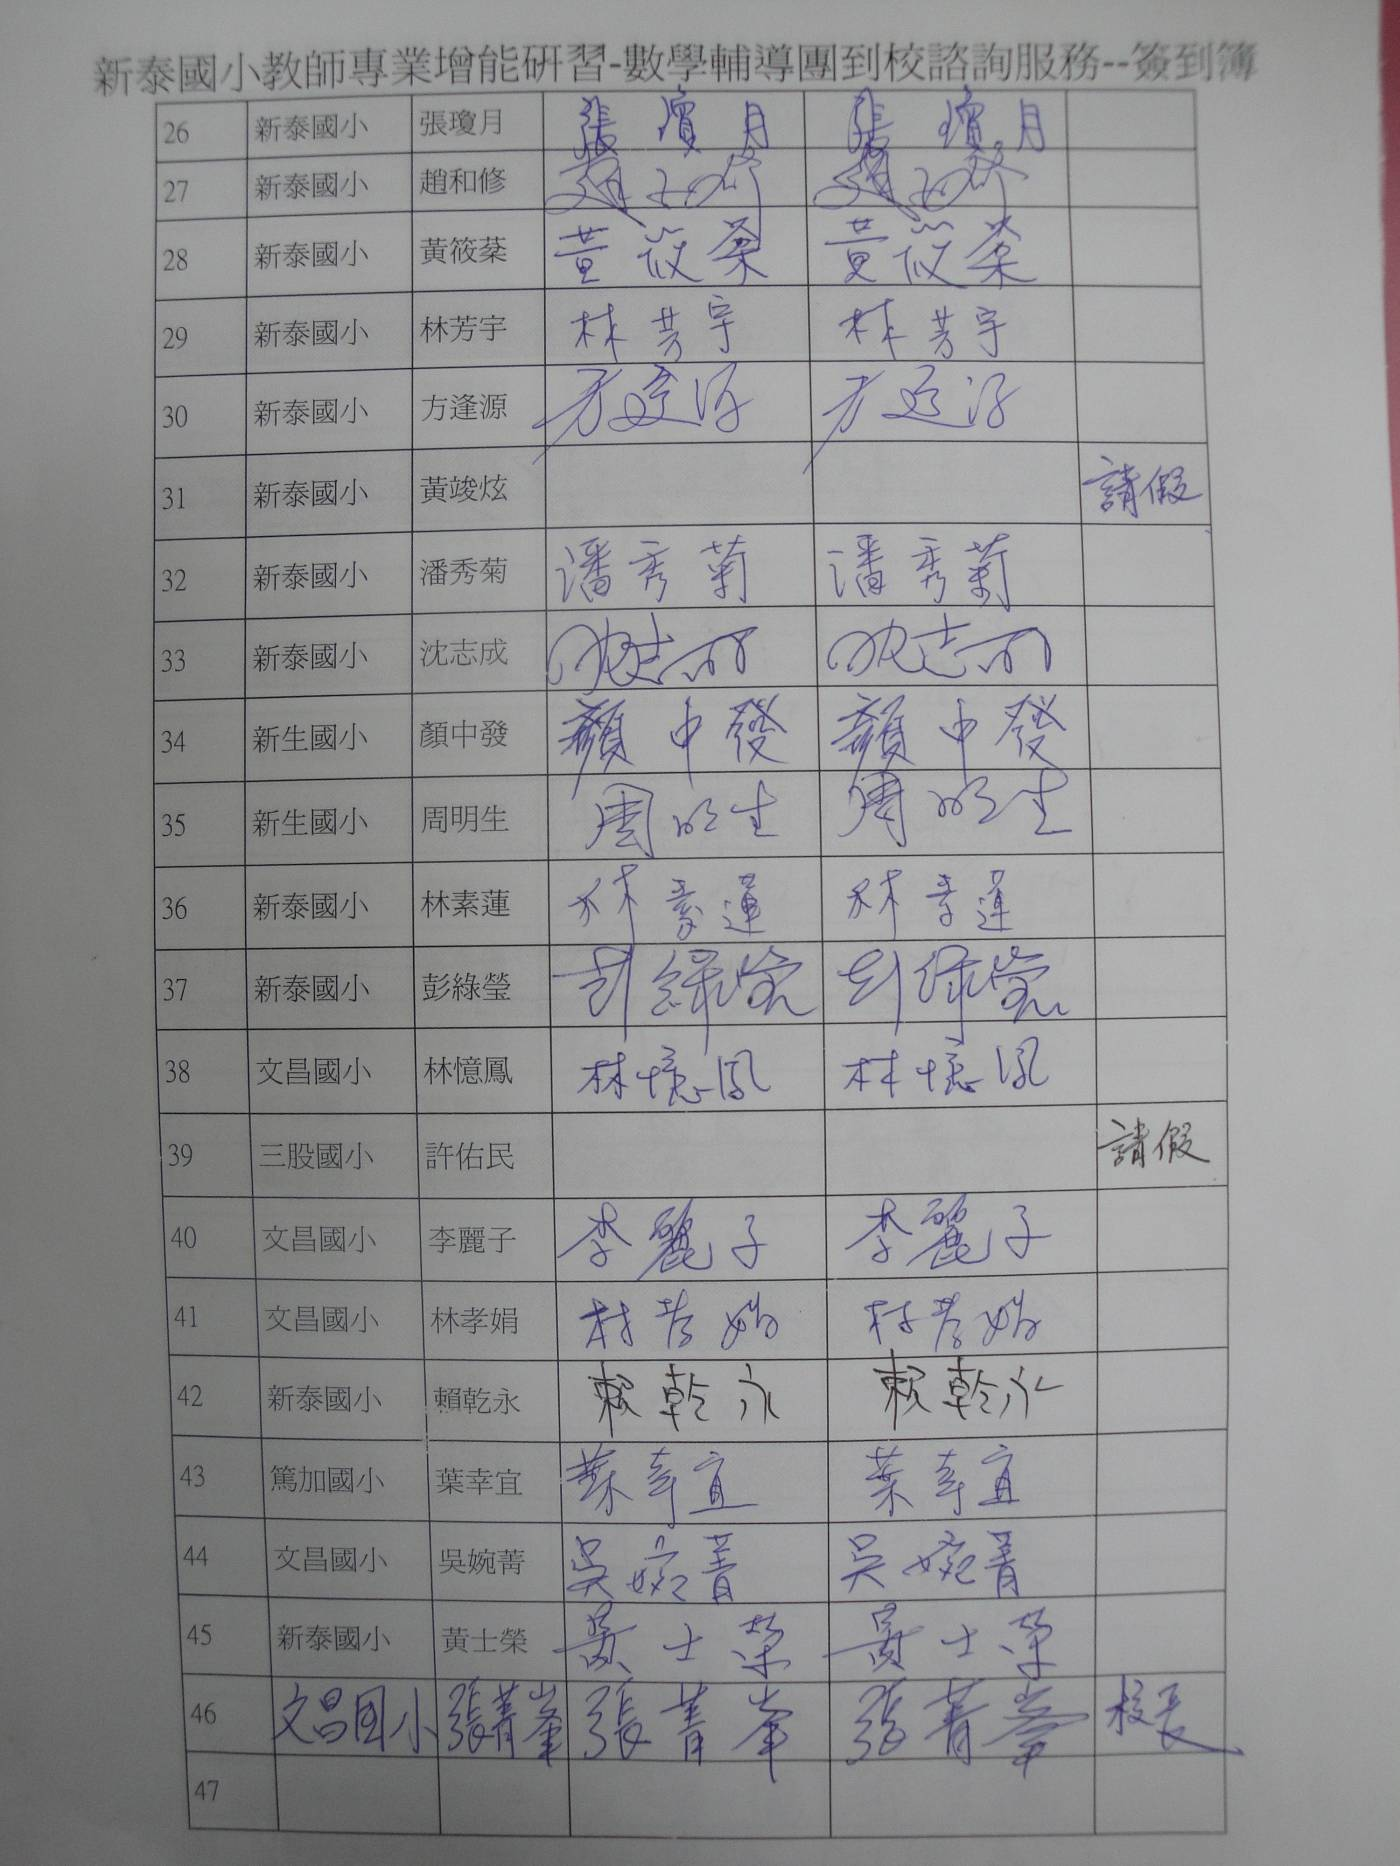 新泰國小教師專業增能研習-數學輔導團到校諮詢服務--簽到簿
26 新泰國小 張瓊月 張瓊月 張瓊月
27 新泰國小 趙和修 趙和修 趙和修
28 新泰國小 黃筱蔾 黃筱蔾 黃筱蔾
29 新泰國小 林芳宇 林芳宇 林芳宇
30 新泰國小 方逢源 方逢源 方逢源
31 新泰國小 黃竣炫 請假
32 新泰國小 潘秀菊 潘秀菊 潘秀菊
33 新泰國小 沈志成 沈志成 沈志成
34 新生國小 顏中發 顏中發 顏中發
35 新生國小 周明生 周明生 周明生
36 新泰國小 林素蓮 林素蓮 林素蓮
37 新泰國小 彭綠瑩 彭綠瑩 彭綠瑩
38 文昌國小 林憶鳳 林憶鳳 林憶鳳
39 三股國小 許佑民 請假
40 文昌國小 李麗子 李麗子 李麗子
41 文昌國小 林孝娟 林孝娟 林孝娟
42 新泰國小 賴乾永 賴乾永 賴乾永
43 篤加國小 葉幸宜 葉幸宜 葉幸宜
44 文昌國小 吳婉菁 吳婉菁 吳婉菁
45 新泰國小 黃士榮 黃士榮 黃士榮
46 文昌国小 張菁峯 張菁峯 張菁峯 校長
47